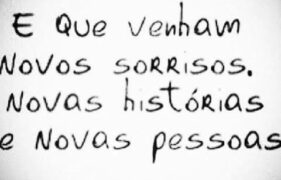 E Que venham
Novos sorrisos.
Novas histórias
e Novas pessoas